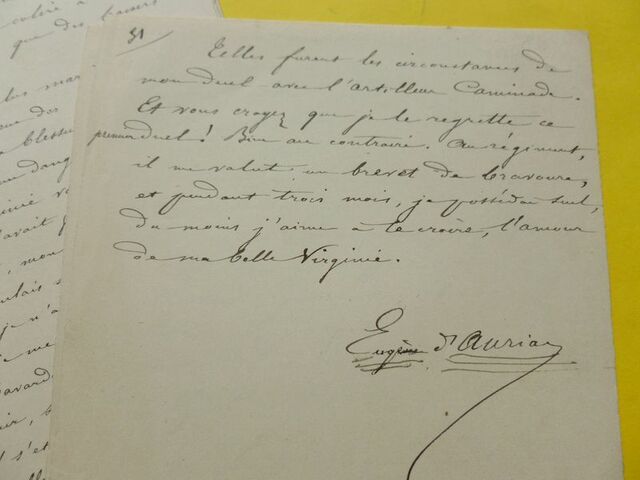 colère à
que des baisers
51
Telles furent les circonstances de
mon duel avec l'artilleur Caminade.
Et vous croyez que je le regrette ce
premier duel ! Bien au contraire. Au régiment,
il me valut un brevet de bravoure,
et pendant trois mois, je possédai seul,
du moins j'aime à le croire, l'amour
de ma belle Virginie.
Eugène d'Auriac